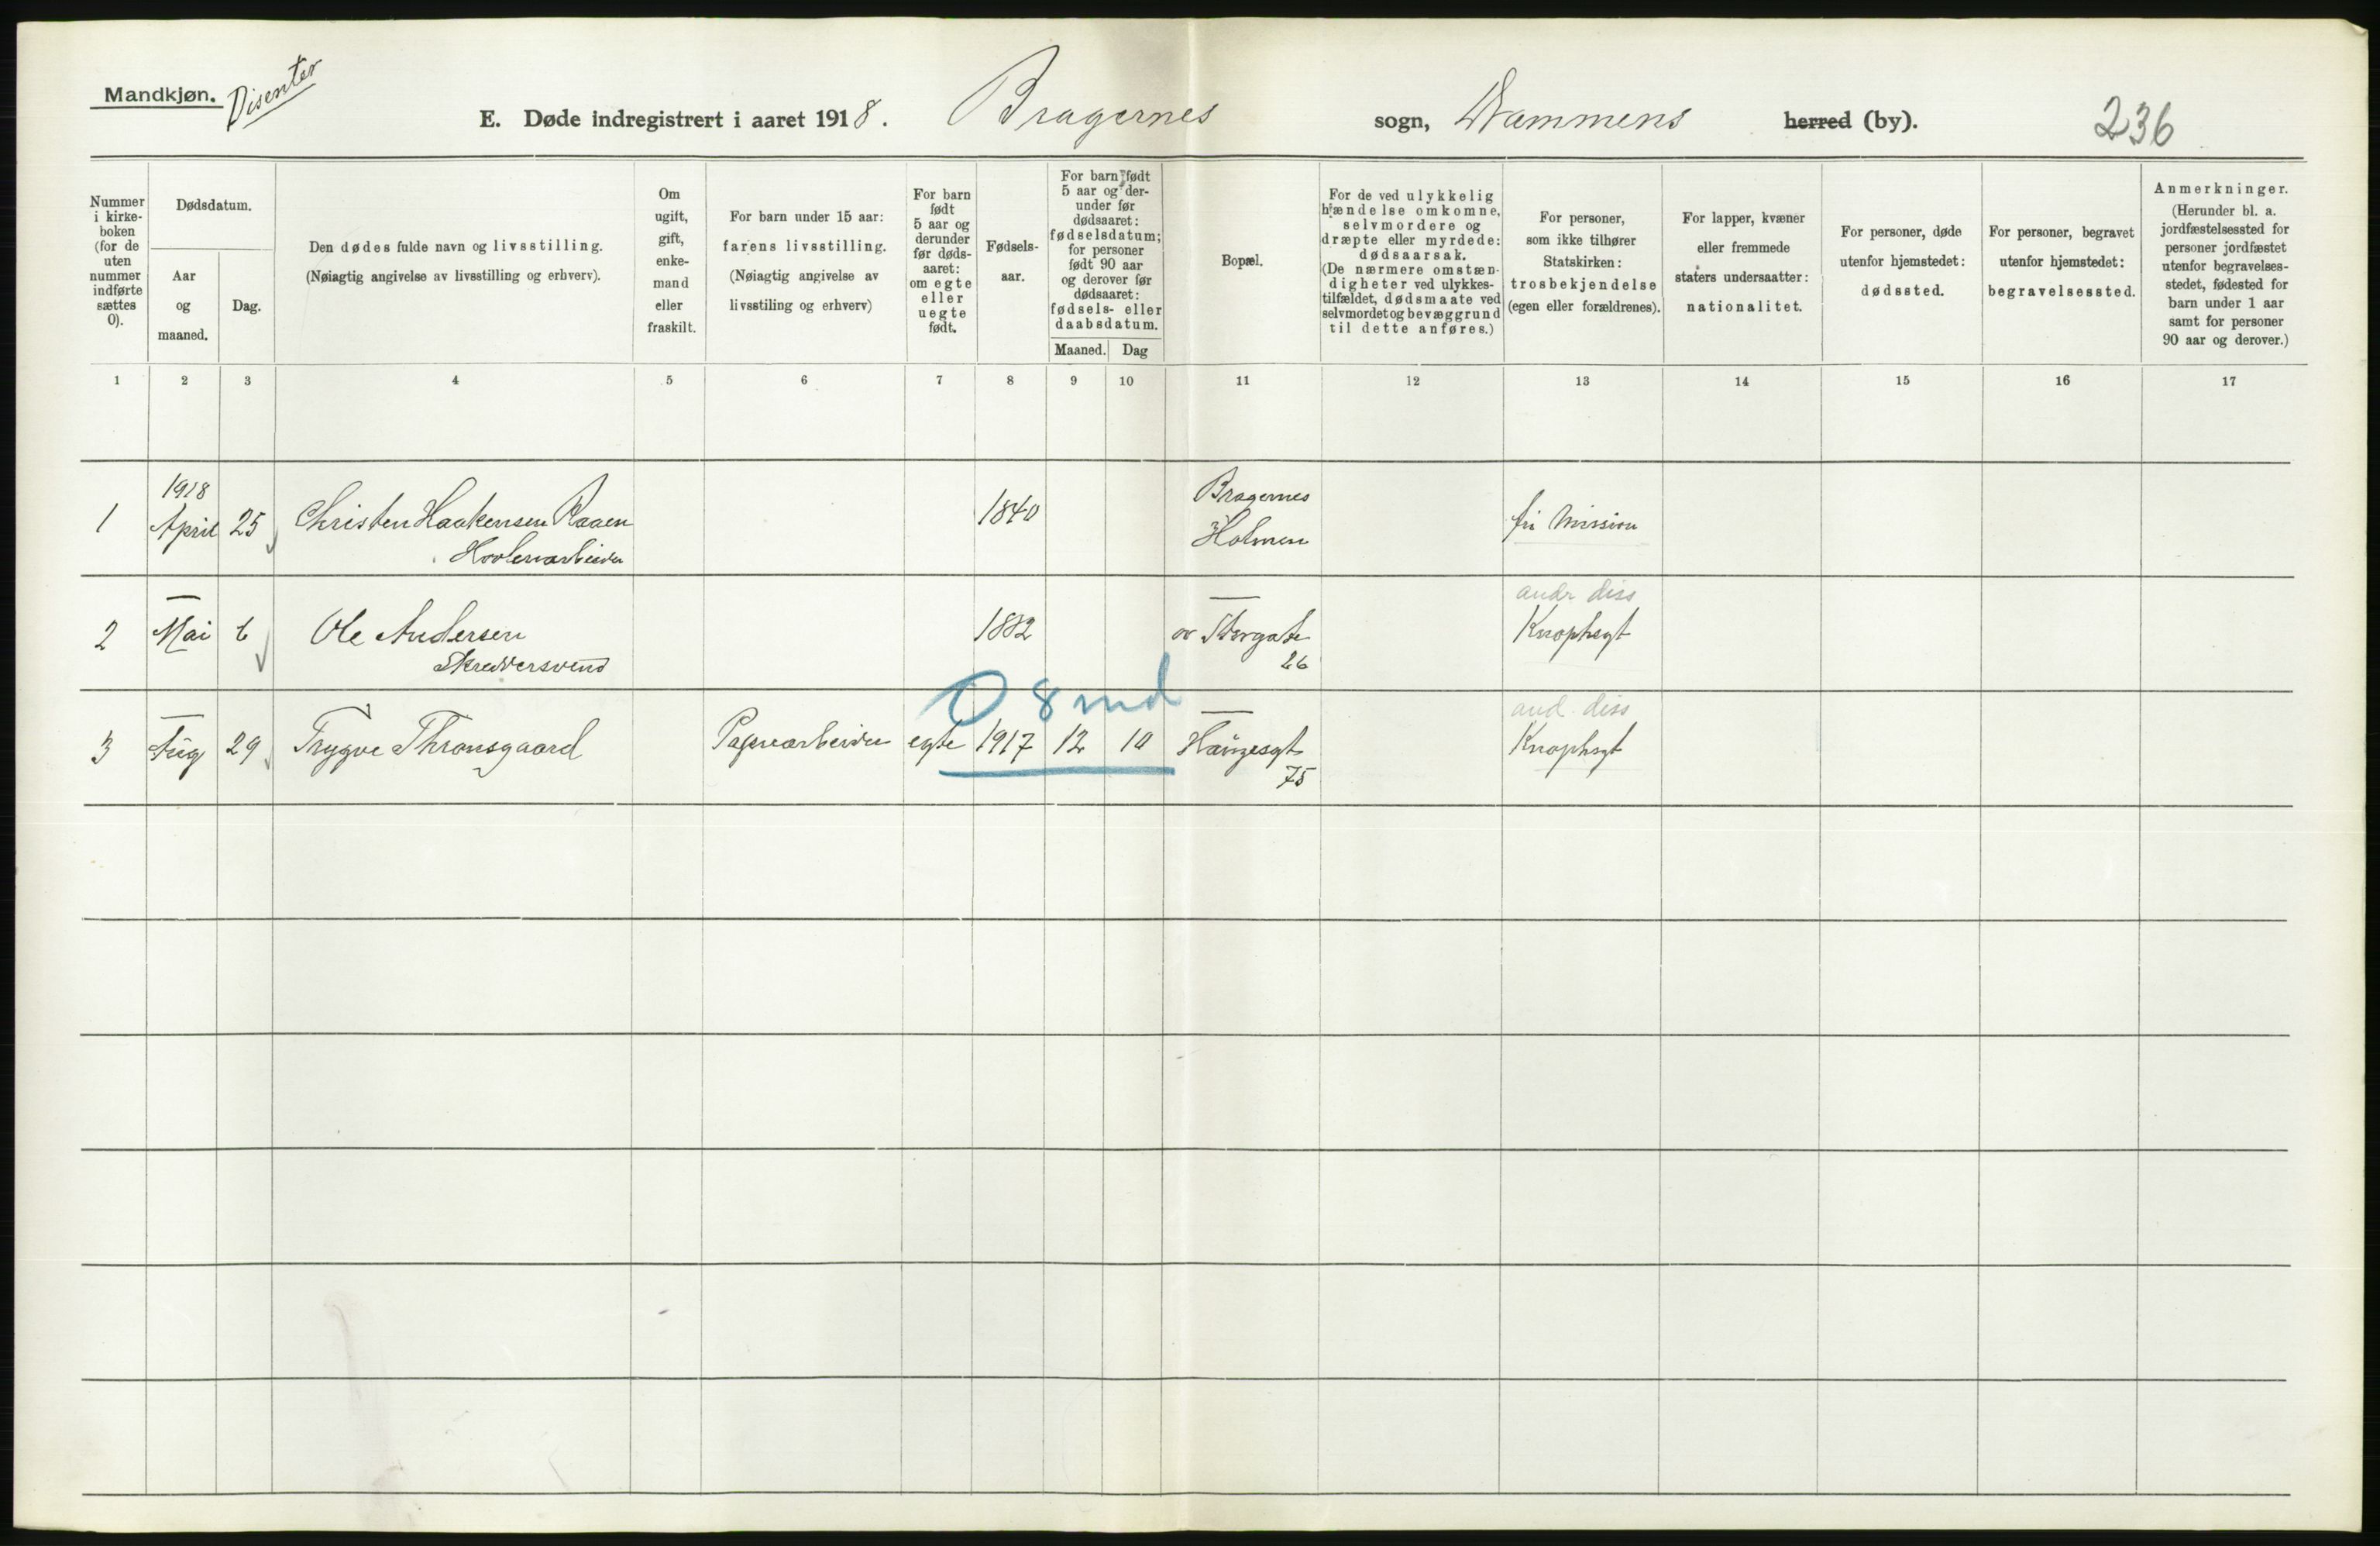 Mandkjøn. Disenter
E. Døde indregistrert i aaret 1918. Bragernes sogn, Drammens herred (by). 236
Nummer i kirke- boken (for de uten nummer indførte sættes 0).
Dødsdatum.
Aar og maaned.
Dag.
Den dødes fulde navn og livsstilling.
(Nøiagtig angivelse av livsstilling og erhverv).
Om ugift, gift, enke- mand eller fraskilt.
For barn under 15 aar:
farens livsstilling.
(Nøiagtig angivelse av
livsstiling og erhverv)
For barn født 5 aar og derunder før døds- aaret: om egte eller uegte født.
Fødsels- aar.
For barn født 5 aar og der- under før dødsaaret: fødselsdatum; for personer født 90 aar og derover før dødsaaret: fødsels- eller daabsdatum.
Maaned. Dag
Bopæl.
For de ved ulykkelig hændelse omkomne, selvmordere og dræpte eller myrdede: dødsaarsak. (De nærmere omstæn- digheter ved ulykkes- tilfældet, dødsmaate ved selvmordet og bevæggrund til dette anføres.)
For personer, som ikke tilhører Statskirken: trosbekjendelse (egen eller forældrenes).
For lapper, kvæner eller fremmede staters undersaatter: nationalitet.
For personer, døde utenfor hjemstedet: dødssted.
For personer, begravet utenfor hjemstedet: begravelsessted.
Anmerkninger.
(Herunder bl. a. jordfæstelsessted for personer jordfæstet utenfor begravelses- stedet, fødested for barn under 1 aar samt for personer 90 aar og derover.)
1 2 3 4 5 6 7 8 9 10 11 12 13 14 15 16 17
1918 Bragernes
1 April 25 Christen Haakensen Raaen 1840 Holmen fri Mission
— — andr diss
2 Mai 6 Ole Andersen 1882 Storgate Knophsgt
Skreddersvend 26
0 8 md
— — and. diss
3 Aug 29 Trygve Thronsgaard Papirarbeider egte 1917 12 10 Haugesgt Knophsgt
75